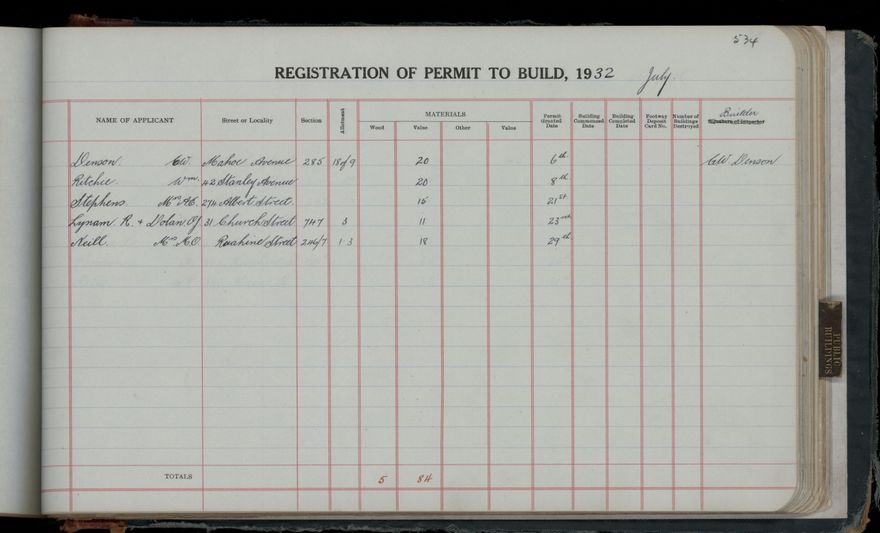 534
REGISTRATION OF PERMIT TO BUILD, 1932 July.
NAME OF APPLICANT Street or Locality Section Allotment MATERIALS Wood Value Other Value Permit Granted Date Building Commenced Date Building Completed Date Footway Deposit Card No. Number of Buildings Destroyed Builder Signature of Inspector
Denson. CW. Mahoe Avenue 285 18 of 9 20 6th CW Denson
Ritchie. Wm. 42 Stanley Avenue 20 8th
Stephens. Mrs A.E. 274 Albert Street. 15 21st
Lynam. R. + Dolan 31 Church Street 747 3 11 23rd
Neill. Mrs Ruahine Street 246/7 1·3 18 29th
TOTALS 5 84
PUBLIC BUILDINGS